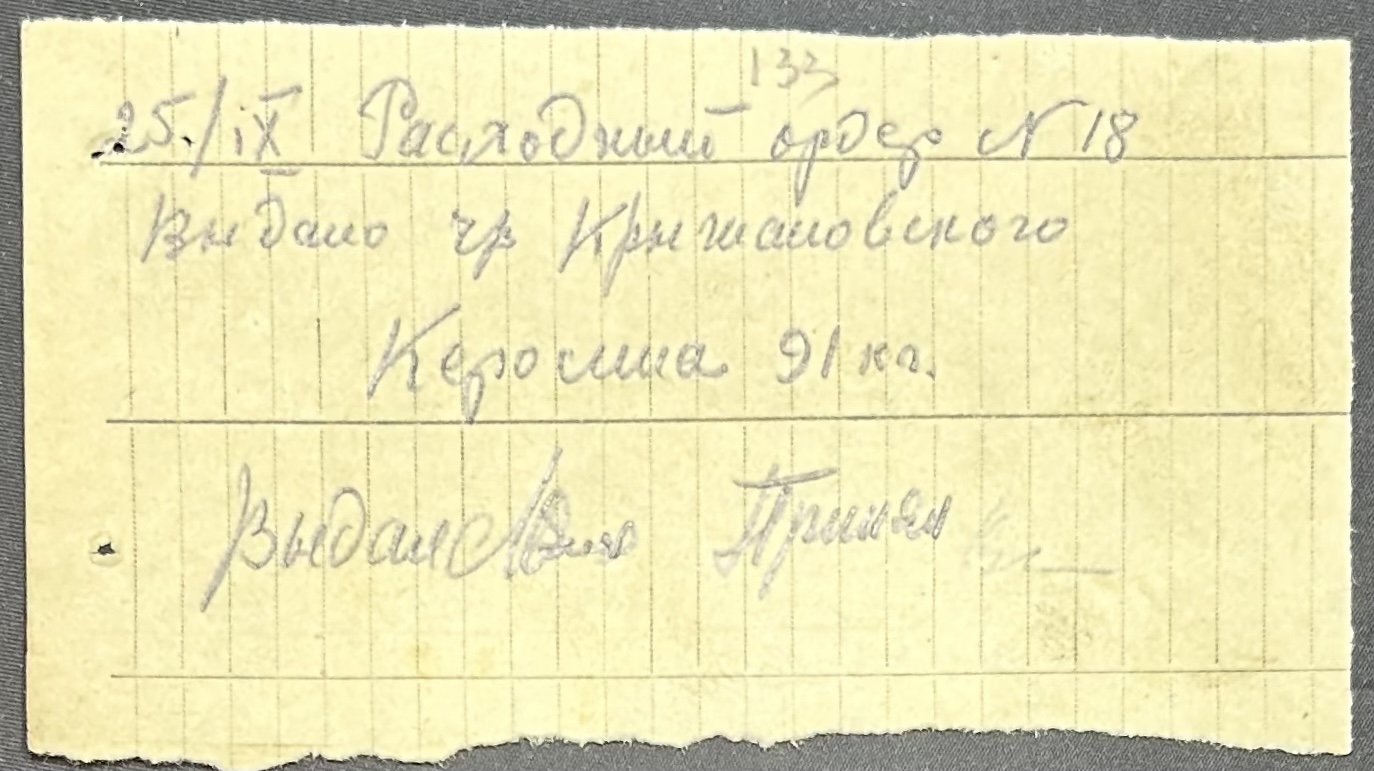 133
25/IX Расходный ордер N 18
Выдано чр Крыжановского
Керосина 91 кг.
Выдал Принял